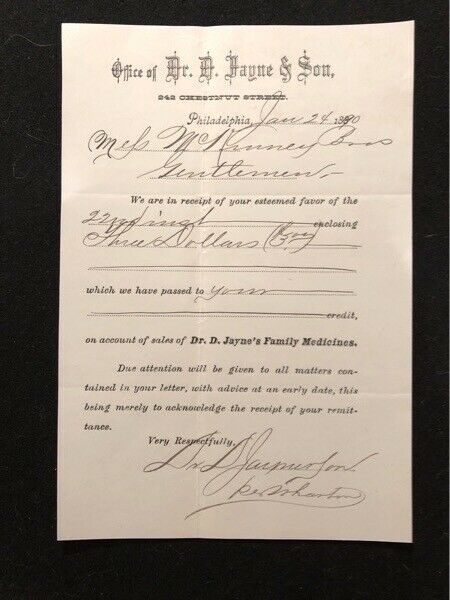 Office of Dr. D. Jayne & Son,
242 CHESTNUT STREET.
Philadelphia, Jan 24 1890
Mess McKinney Bros
Gentlemen,-
We are in receipt of your esteemed favor of the
22nd inst enclosing
Three Dollars
which we have passed to your
credit,
on account of sales of Dr. D. Jayne's Family Medicines.
Due attention will be given to all matters con-
tained in your letter, with advice at an early date, this
being merely to acknowledge the receipt of your remit-
tance.
Very Respectfully,
Dr D Jayne & Son.
per Wharton